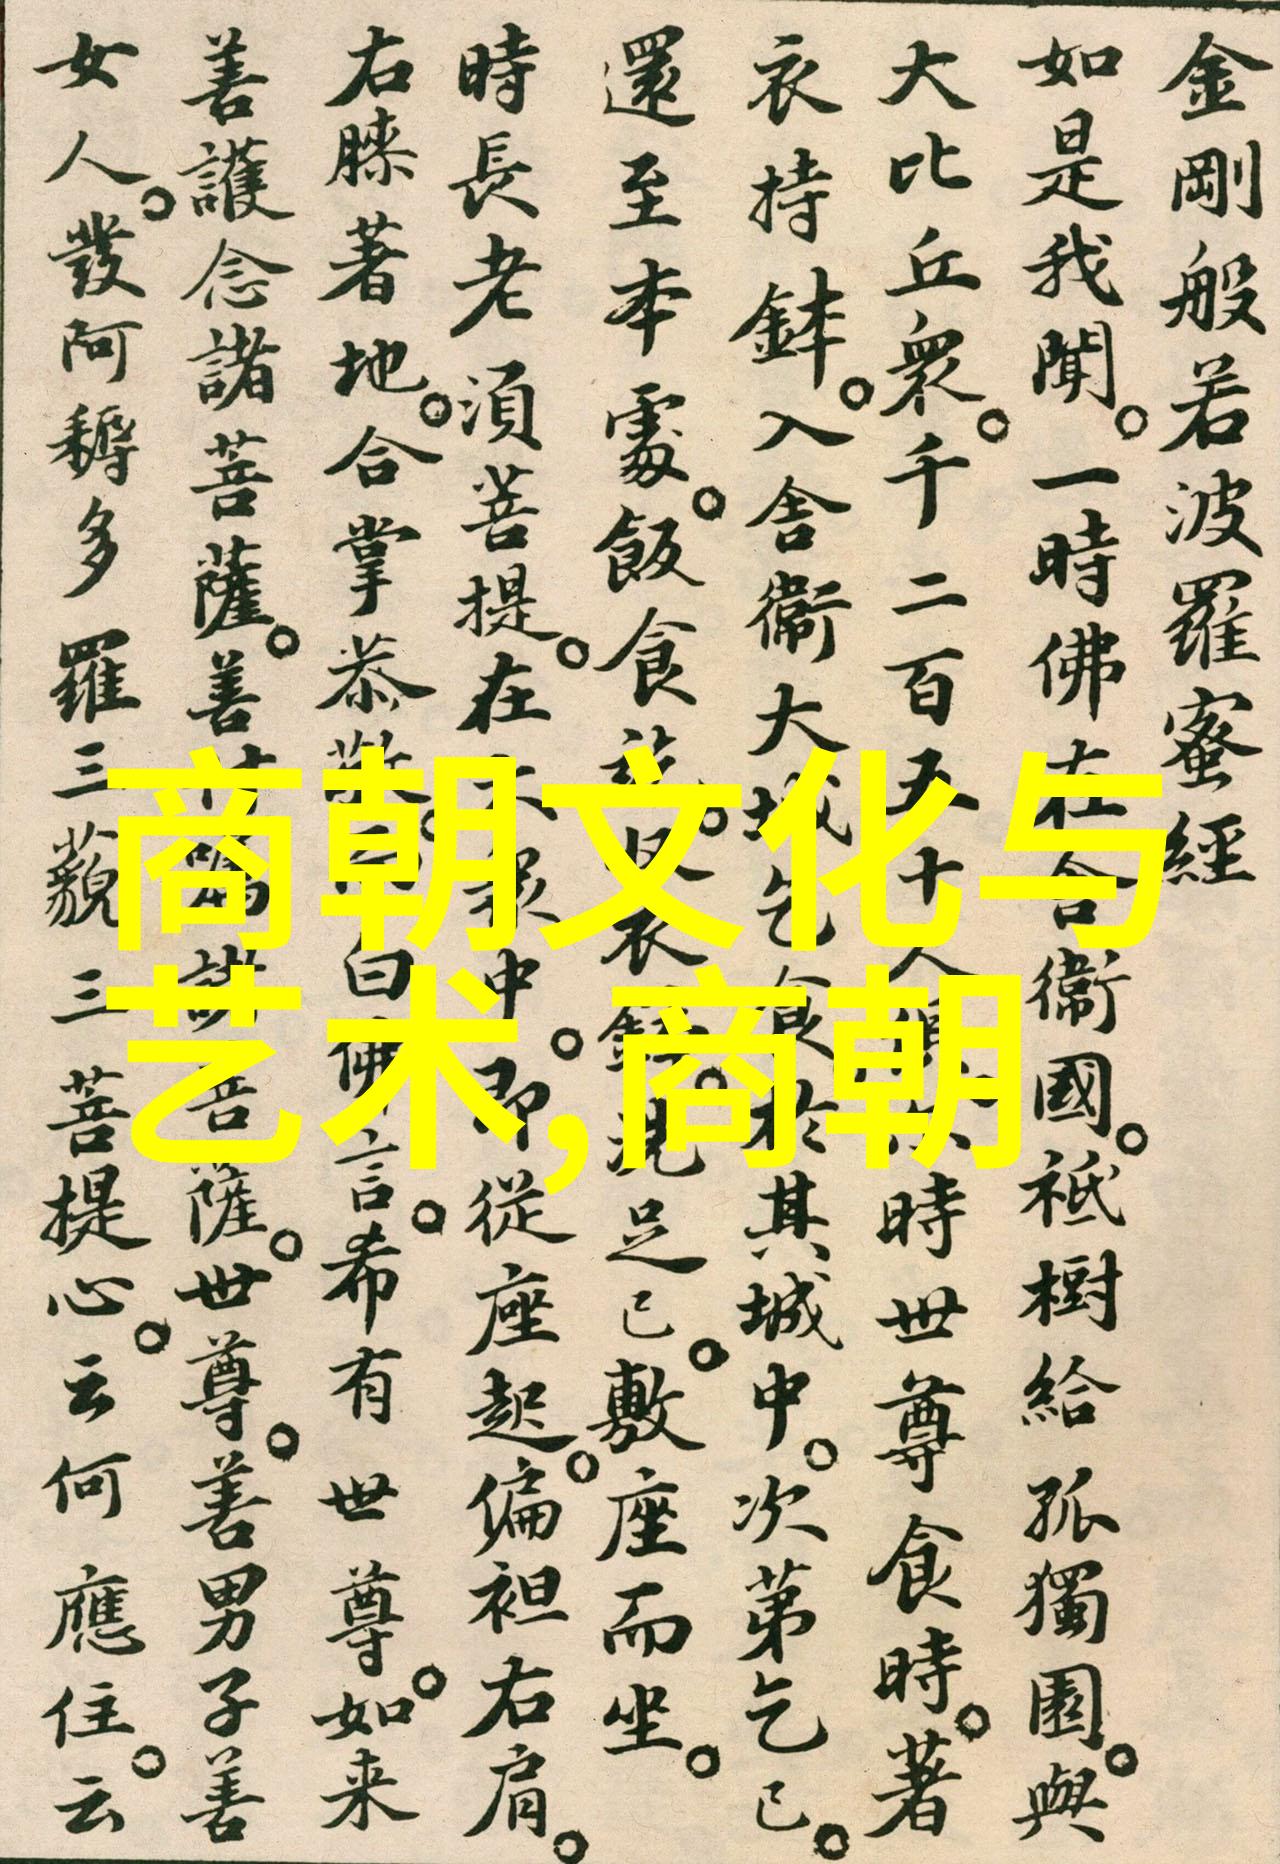 金剛般若波羅蜜經
如是我聞。一時佛在舍衛國。祇樹給孤獨園。與
大比丘衆。千二百五十人時世尊食時。著
衣持鉢。入舍衛大城乞食於其城中。次第乞已。
還至本處。飯食訖。收衣鉢。洗足已。敷座而坐。
時長老須菩提。在大衆中。即從座起。偏袒右肩。
右膝著地。合掌恭敬。而白佛言。希有世尊。如来
善護念諸菩薩。善付囑諸菩薩。世尊。善男子善
女人。發阿耨多羅三藐三菩提心。云何應住。云
商朝文化与
艺术,商朝